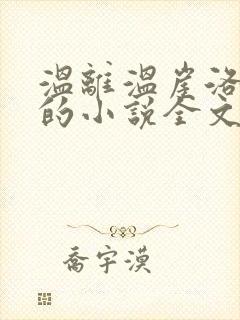 温離温崖洛
的小說全文
喬宇漠